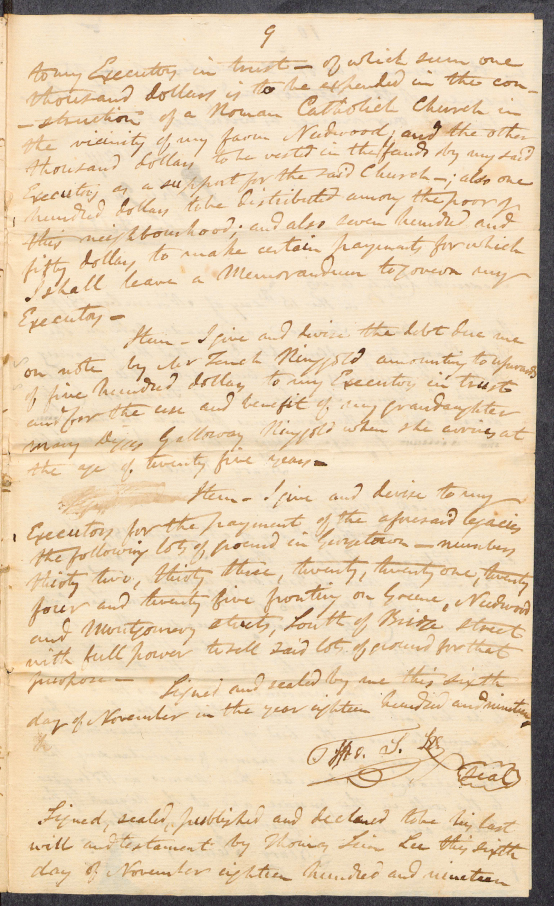 9
to my Executors in trust — of which sum one
thousand dollars is to be expended in the con-
-struction of a Roman Catholick Church in
the vicinity of my farm Needwood, and the other
thousand dollars to be vested in the funds by my said
Executors as a support for the said Church —; also one
hundred dollars to be distributed among the poor of
this neighbourhood; and also seven hundred and
fifty dollars to make certain payments for which
I shall leave a Memorandum to govern my
Executors —
Item — I give and devise the debt due me
on note by Mr Tench Ringgold amounting to upwards
of five hundred dollars to my Executors in trust
and for the use and benefit of my grandaughter
Mary Digges Galloway Ringgold when she arrives at
the age of twenty five years —
Item — I give and devise to my
Executors for the payment of the aforesaid legacies
the following lots of ground in Georgetown — numbers
thirty two, thirty three, twenty, twenty one, twenty
four and twenty five fronting on Greene, Needwood
and Montgomery streets, South of Bridge street
with full power to sell said lots of ground for that
purpose —
Signed and sealed by me this sixth
day of November in the year eighteen hundred and nineteen
Tho. S. Lee
Seal
Signed, sealed, published and declared to be his last
will and testament by Thomas Sim Lee this sixth
day of November eighteen hundred and nineteen